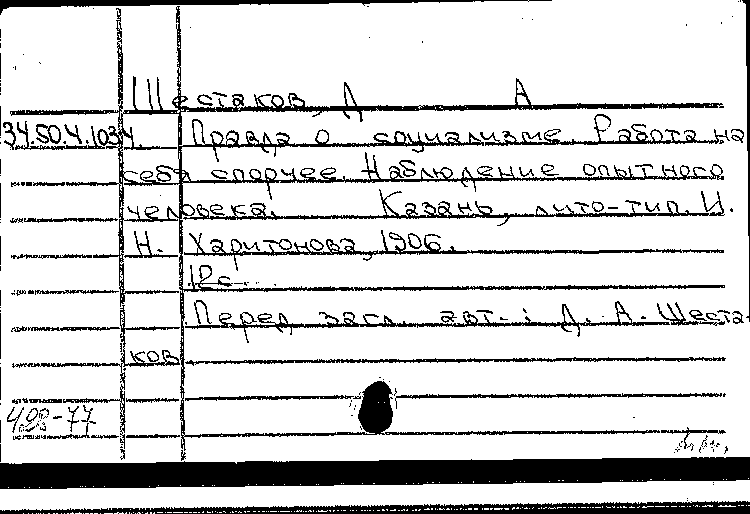 Шестаков, Д А
34.50.4.1034. Правда о социализме. Работа на
себя спорчее. Наблюдение опытного
человека. Казань, лито-тип. И.
Н. Харитонова, 1906.
12с.
Перед загл. авт.: Д. А. Шеста-
ков
428-77